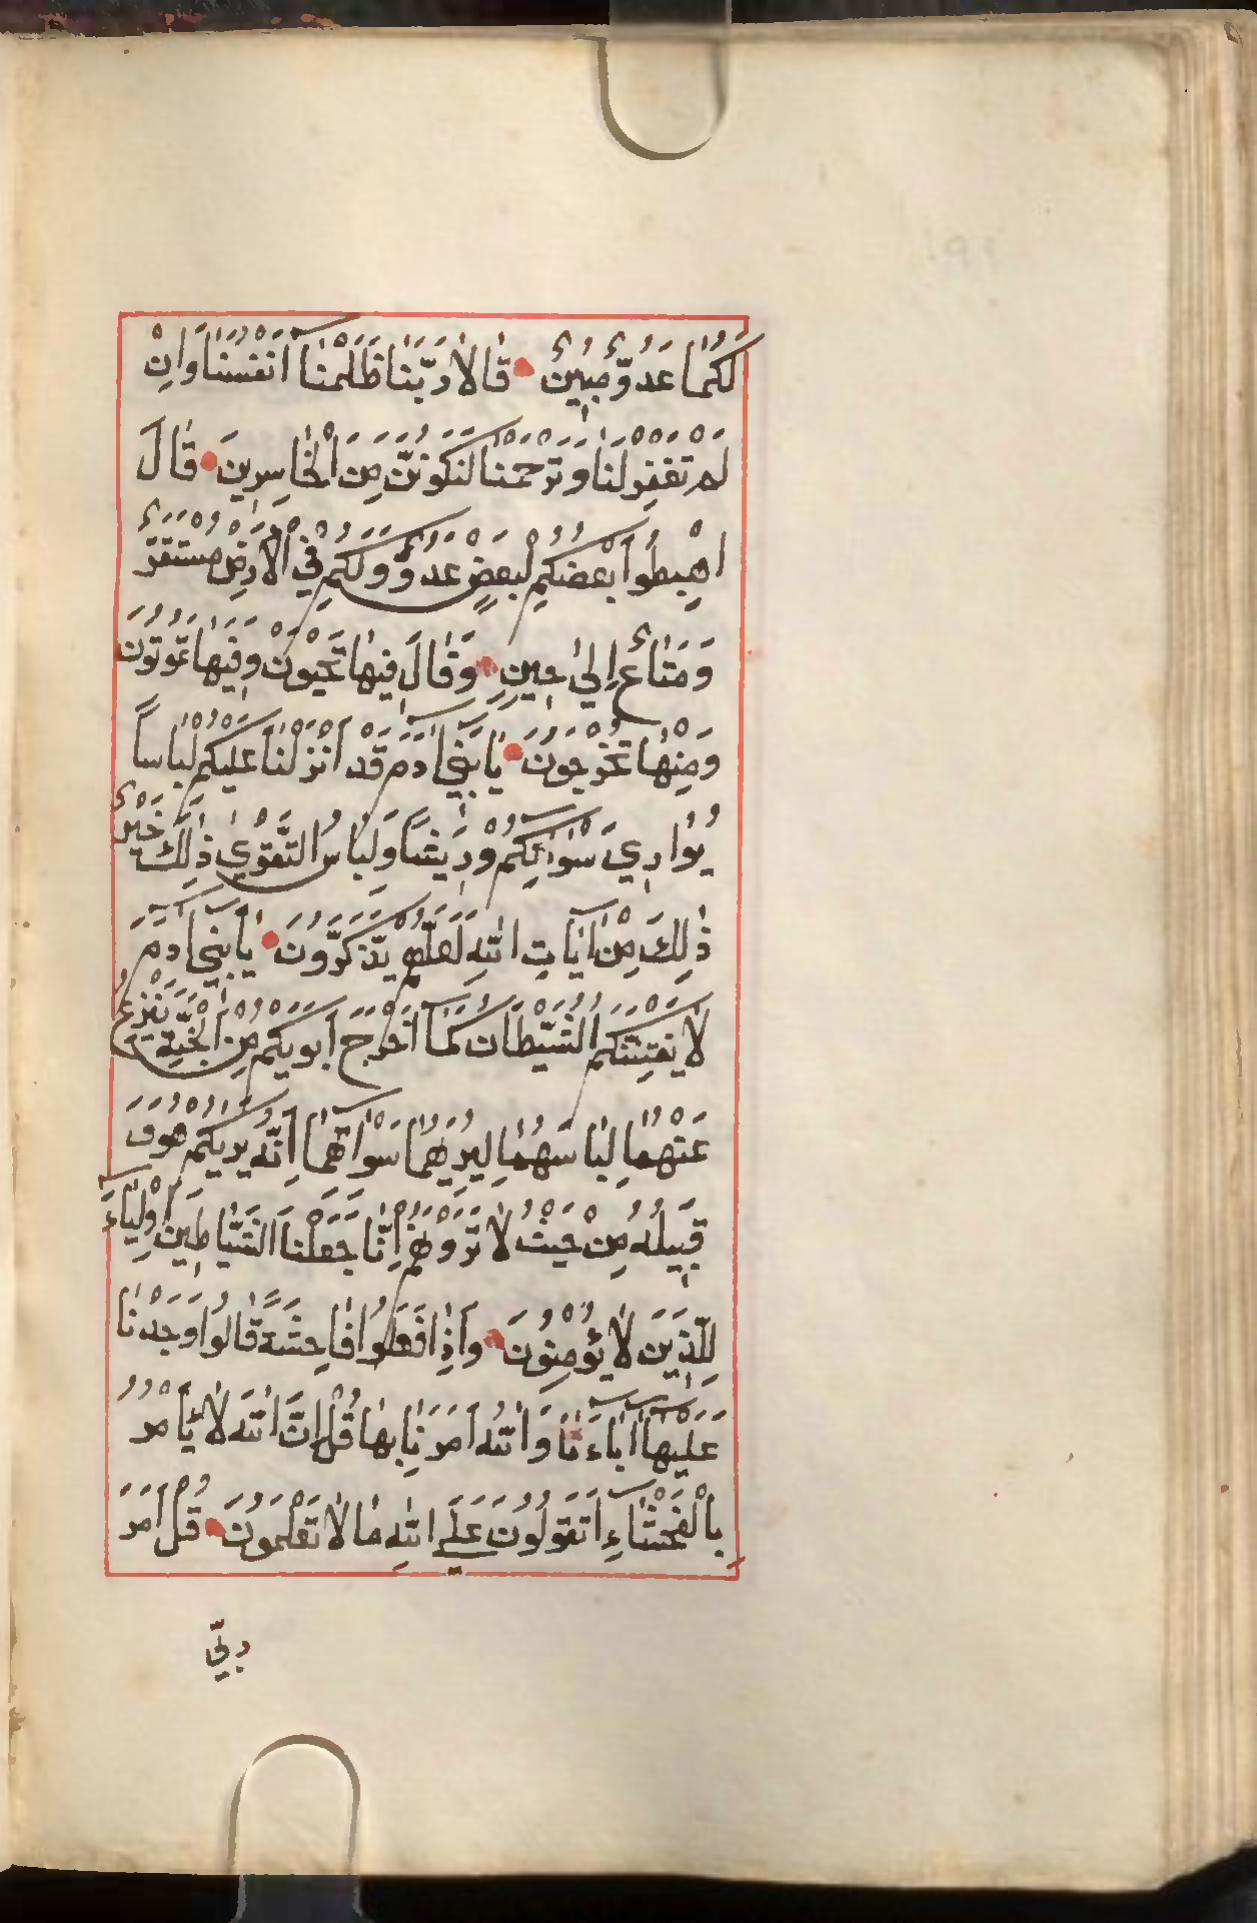 لَكُمَا عَدُوٌّ مُبِينٌ قَالَا رَبَّنَا ظَلَمْنَا أَنْفُسَنَا وَإِنْ
لَمْ تَغْفِرْ لَنَا وَتَرْحَمْنَا لَنَكُونَنَّ مِنَ الْخَاسِرِينَ قَالَ
اهْبِطُوا بَعْضُكُمْ لِبَعْضٍ عَدُوٌّ وَلَكُمْ فِي الْأَرْضِ مُسْتَقَرٌّ
وَمَتَاعٌ إِلَىٰ حِينٍ وَقَالَ فِيهَا تَحْيَوْنَ وَفِيهَا تَمُوتُونَ
وَمِنْهَا تُخْرَجُونَ يَا بَنِي آدَمَ قَدْ أَنْزَلْنَا عَلَيْكُمْ لِبَاسًا
يُوَارِي سَوْآتِكُمْ وَرِيشًا وَلِبَاسُ التَّقْوَىٰ ذَٰلِكَ خَيْرٌ
ذَٰلِكَ مِنْ آيَاتِ اللَّهِ لَعَلَّهُمْ يَذَّكَّرُونَ يَا بَنِي آدَمَ
لَا يَفْتِنَنَّكُمُ الشَّيْطَانُ كَمَا أَخْرَجَ أَبَوَيْكُمْ مِنَ الْجَنَّةِ يَنْزِعُ
عَنْهُمَا لِبَاسَهُمَا لِيُرِيَهُمَا سَوْآتِهِمَا إِنَّهُ يَرَاكُمْ هُوَ وَ
قَبِيلُهُ مِنْ حَيْثُ لَا تَرَوْنَهُمْ إِنَّا جَعَلْنَا الشَّيَاطِينَ أَوْلِيَاءَ
لِلَّذِينَ لَا يُؤْمِنُونَ وَإِذَا فَعَلُوا فَاحِشَةً قَالُوا وَجَدْنَا
عَلَيْهَا آبَاءَنَا وَاللَّهُ أَمَرَنَا بِهَا قُلْ إِنَّ اللَّهَ لَا يَأْمُرُ
بِالْفَحْشَاءِ أَتَقُولُونَ عَلَى اللَّهِ مَا لَا تَعْلَمُونَ قُلْ أَمَرَ
رَبِّي